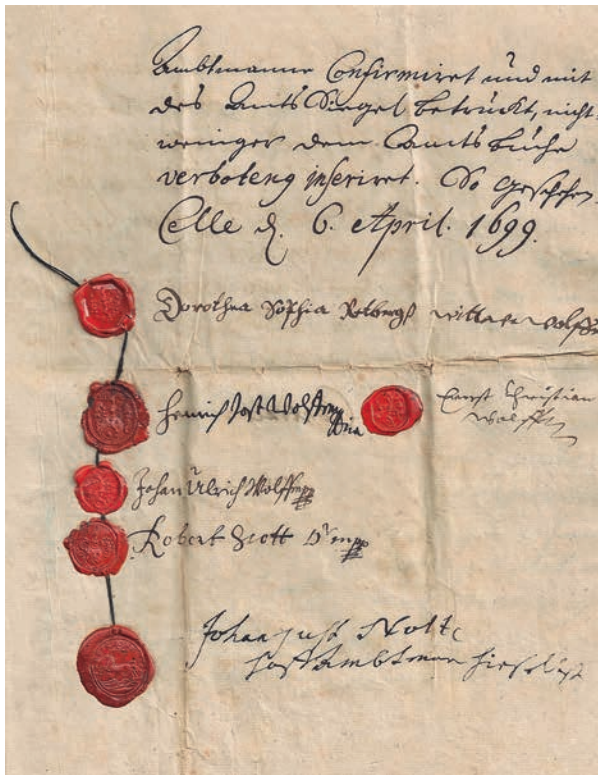 Ambtmanne Confirmiret und mit
des Ambts Siegel betrückt, nicht
weniger dem Ambts buche
verboteng inseriret. So geschehen
Celle d. 6. April. 1699.
Dorothea Sophia Rotbergs wittwe Wolffen
Henrich Jost Wolff mpp
Ernst Christian
Wolfft
Johan Ulrich Wolff mpp
Robert Scott Dr mpp
Johan Just Nolte
Ambtman hieselbst